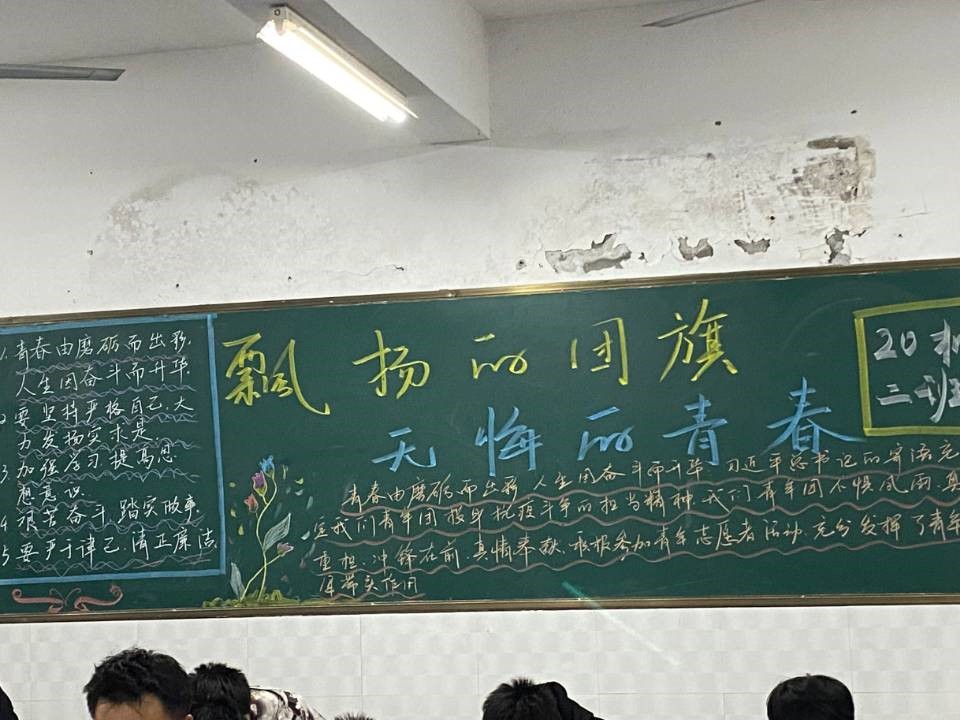 1.青春由磨砺而出彩.
人生因奋斗而升华
2 要坚持严格自己.大
力发扬实求是.
3.加强学习提高思
想意识.
4.艰苦奋斗踏实做事.
5.要严于律己.清正廉洁
飘扬的团旗
无悔的青春
20
二班
青春由磨砺而出彩 人生因奋斗而升华 习近平总书记的寄语充
我们青年团 投身抗疫斗争的担当精神.我们青年团不惧风雨.勇
重担.冲锋在前.真情奉献.积极参加青年志愿者活动.充分发挥了青年
带头作用